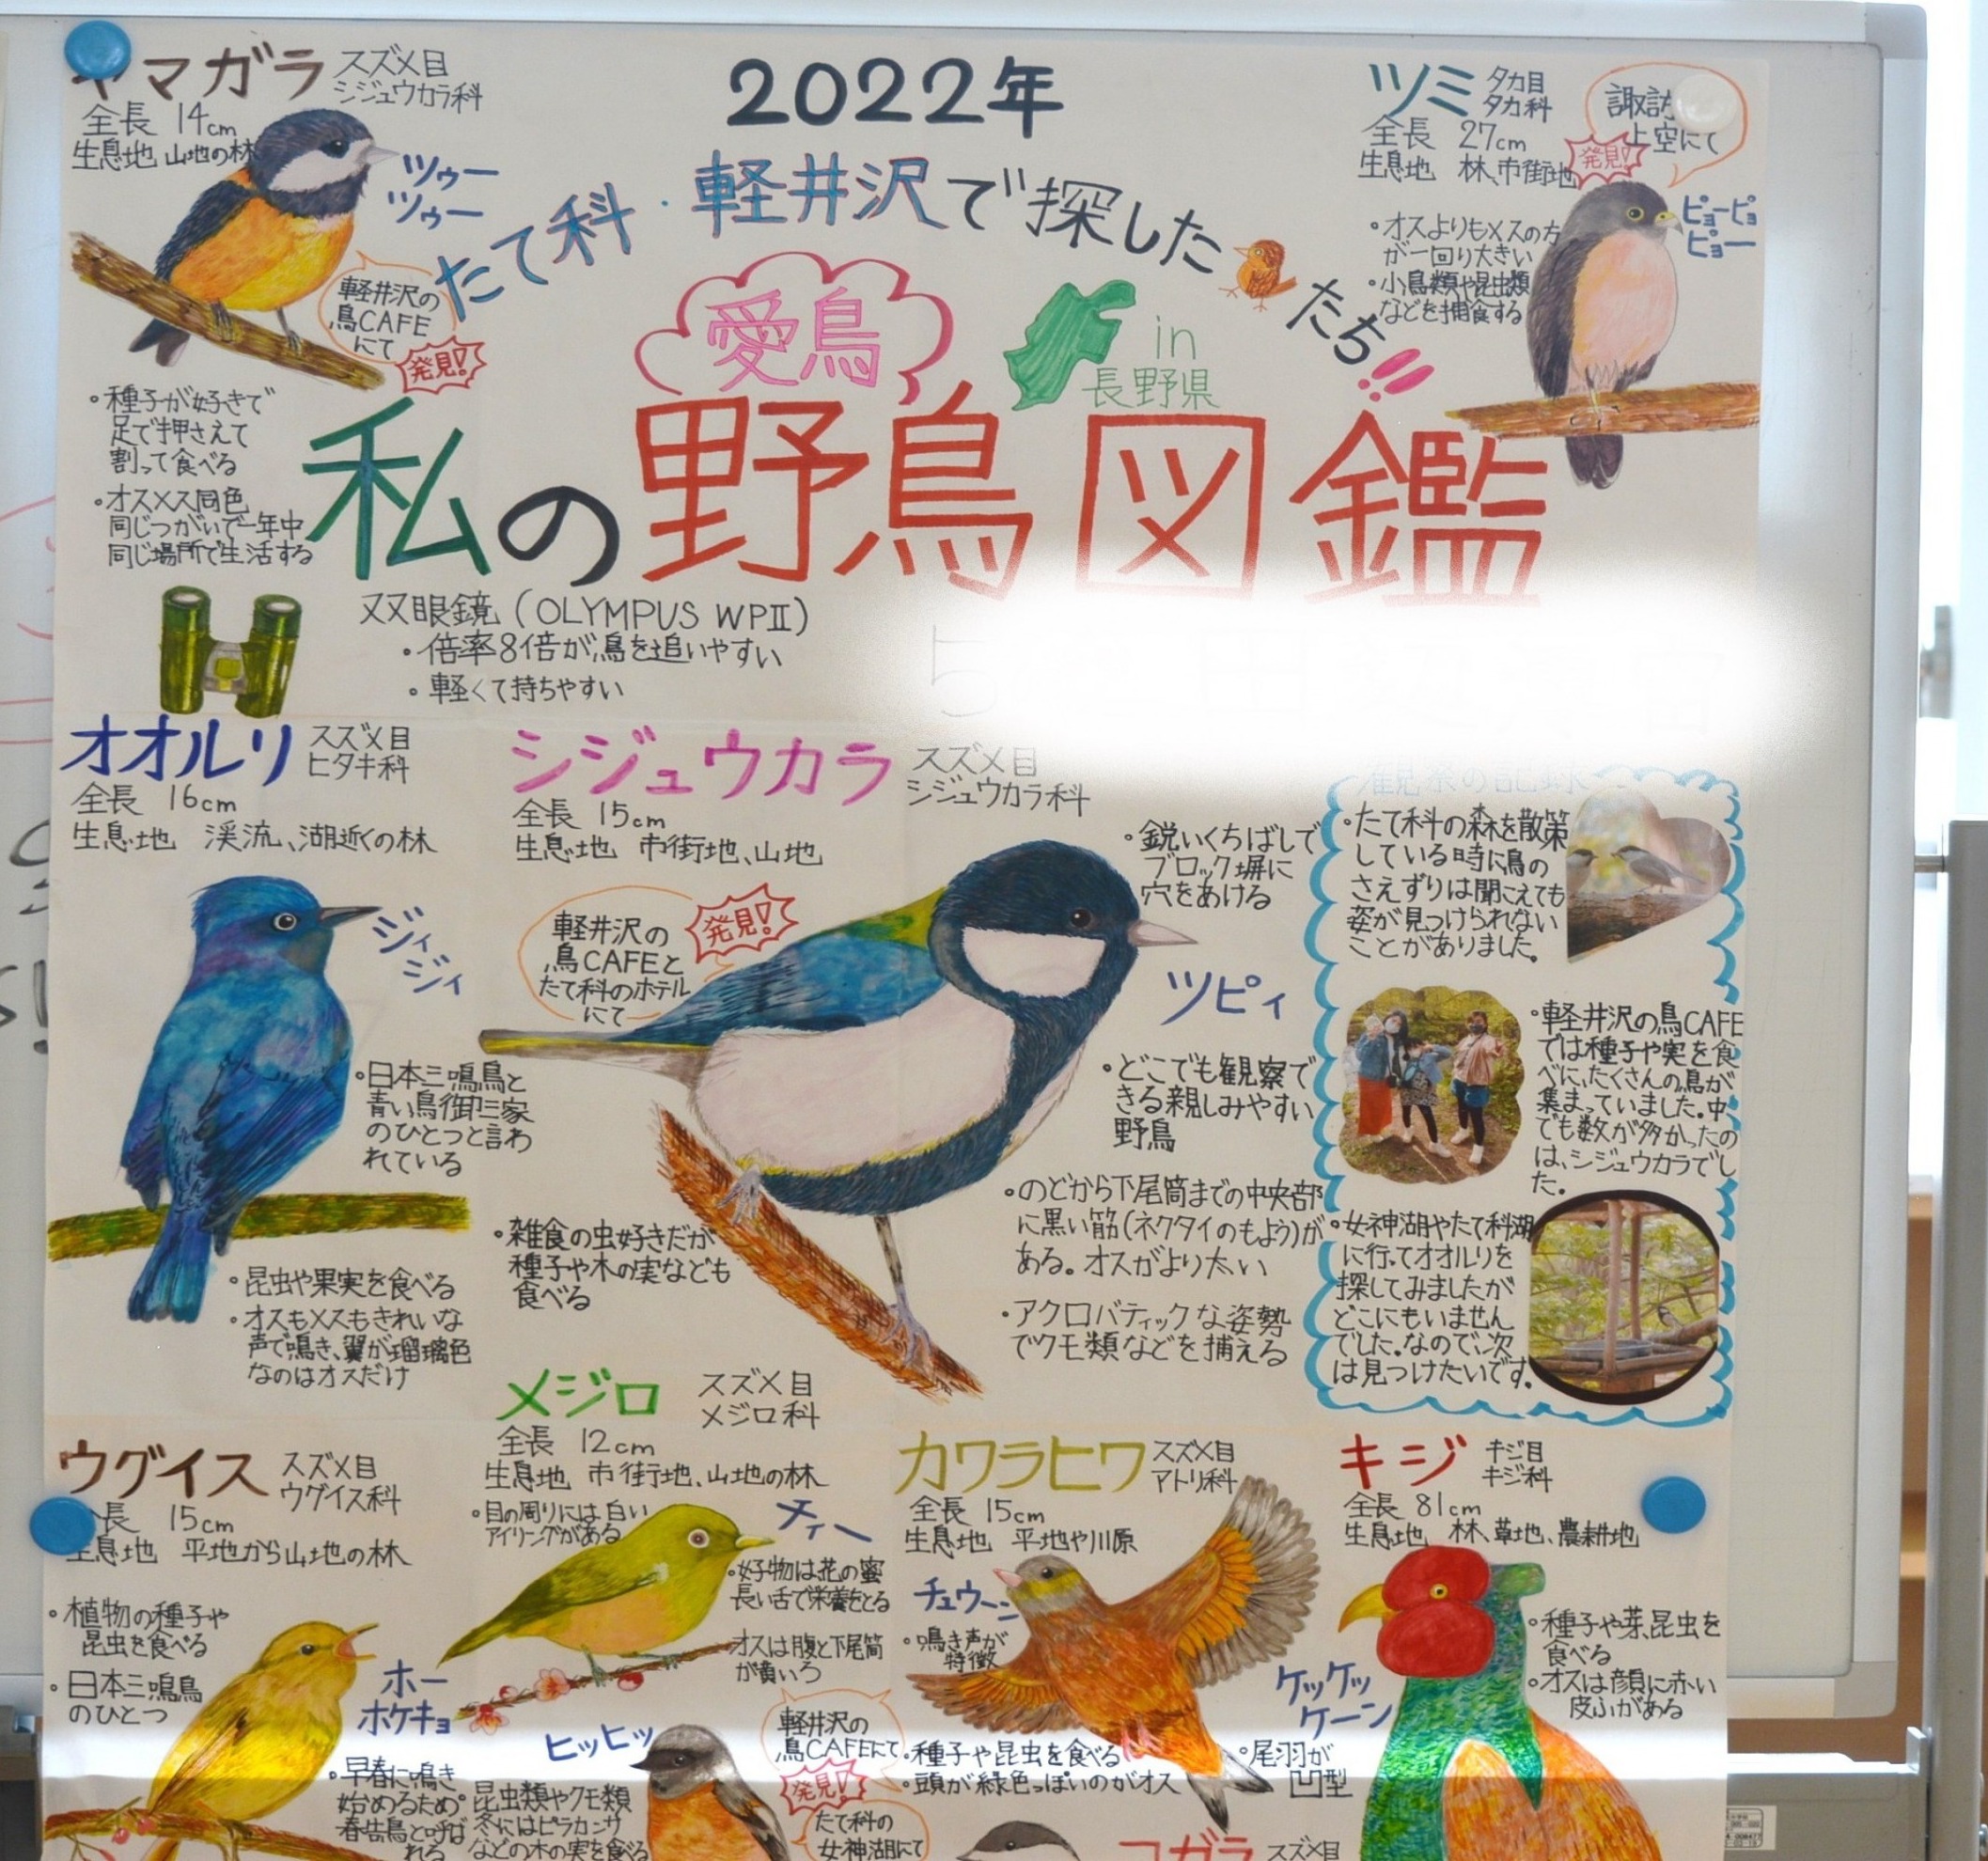 2022年
たて科・軽井沢で探した
たち!!
愛鳥
in
長野県
私の野鳥図鑑
マガラ
スズメ目
シジュウカラ科
全長 14cm
生息地 山地の林
ツゥー
ツゥー
軽井沢の
鳥CAFE
にて
発見!
・種子が好きで
足で押さえて
割って食べる
・オスメス同色
同じつがいで一年中
同じ場所で生活する
ツミ
タカ目
タカ科
全長 27cm
生息地 林、市街地
諏訪
上空にて
発見!
ピョーピョ
ピョー
・オスよりもメスの方
が一回り大きい
・小鳥類や昆虫類
などを捕食する
双眼鏡(OLYMPUS WPⅡ)
・倍率8倍が鳥を追いやすい
・軽くて持ちやすい
オオルリ
スズメ目
ヒタキ科
全長 16cm
生息地 渓流、湖近くの林
ジィ
ジィ
・日本三鳴鳥と
青い鳥御三家
のひとつと言わ
れている
・昆虫や果実を食べる
・オスもメスもきれいな
声で鳴き、翼が瑠璃色
なのはオスだけ
シジュウカラ
スズメ目
シジュウカラ科
全長 15cm
生息地 市街地、山地
軽井沢の
鳥CAFEと
たて科のホテル
にて
発見!
・鋭いくちばしで
ブロック塀に
穴をあける
ツピィ
・どこでも観察で
きる親しみやすい
野鳥
・のどから下尾筒までの中央部
に黒い筋(ネクタイのもよう)が
ある。オスがより太い
・アクロバティックな姿勢
でクモ類などを捕える
・雑食の虫好きだが
種子や木の実なども
食べる
観察の記録
・たて科の森を散策
している時に鳥の
さえずりは聞こえても
姿が見つけられない
ことがありました。
・軽井沢の鳥CAFE
では種子や実を食
べに、たくさんの鳥が
集まっていました。中
でも数が多かったの
は、シジュウカラでし
た。
・女神湖やたて科湖
に行ってオオルリを
探してみましたが
どこにもいません
でした。なので、次
は見つけたいです。
ウグイス
スズメ目
ウグイス科
長 15cm
生息地 平地から山地の林
・植物の種子や
昆虫を食べる
・日本三鳴鳥
のひとつ
ホー
ホケキョ
・早春に鳴き
始めるため
春告鳥と呼ば
れる
メジロ
スズメ目
メジロ科
全長 12cm
生息地 市街地、山地の林
・目の周りには白い
アイリングがある
チィー
・好物は花の蜜
長い舌で栄養をとる
オスは腹と下尾筒
が黄いろ
カワラヒワ
スズメ目
アトリ科
全長 15cm
生息地 平地や川原
チュウーン
・鳴き声が
特徴
・種子や昆虫を食べる
・頭が緑色っぽいのがオス
・尾羽が
凹型
キジ
キジ目
キジ科
全長 81cm
生息地 林、草地、農耕地
ケッケッ
ケーン
・種子や芽、昆虫を
食べる
・オスは顔に赤い
皮ふがある
ヒッヒッ
・昆虫類やクモ類
冬にはピラカンサ
などの木の実を食べる
軽井沢の
鳥CAFEにて
発見!
たて科の
女神湖にて
コガラ
スズメ目